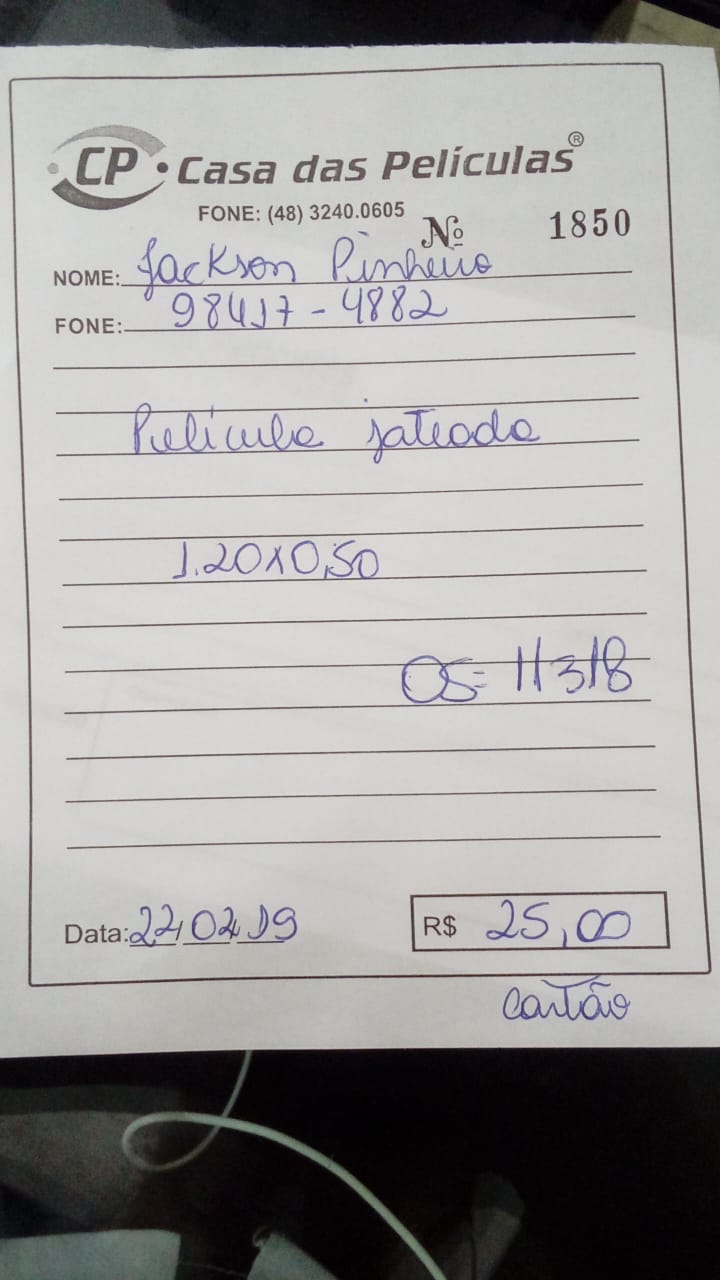 CP • Casa das Películas®
FONE: (48) 3240.0605
Nº 1850
NOME: Jackson Pinheiro
FONE: 98417-4882
Película jateada
1.20x0,50
OS= 11318
Data: 22/02/19
R$ 25,00
cartão